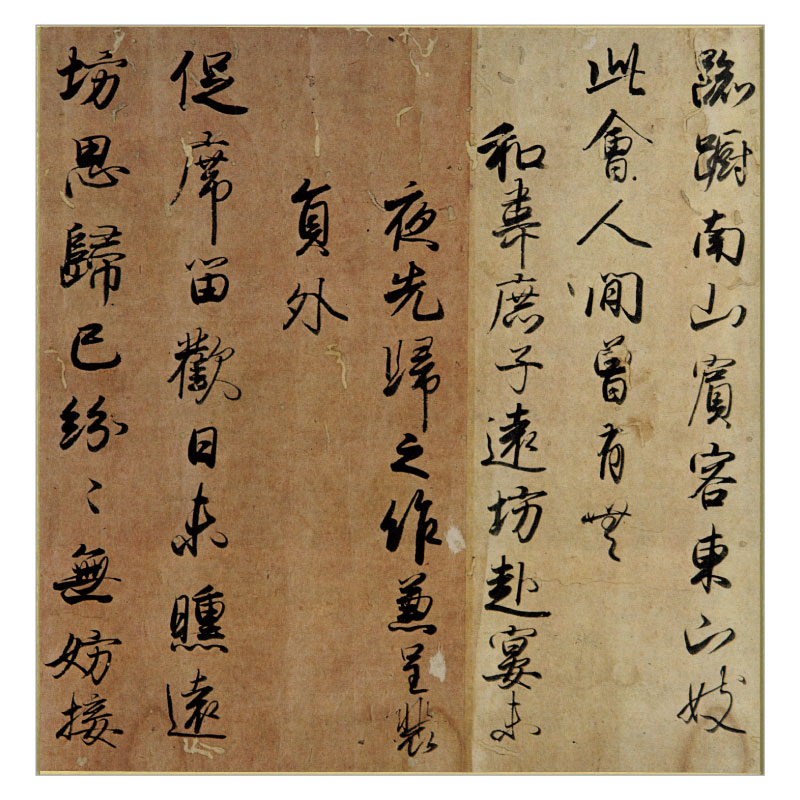 踟蹰南山賓客東山妓
此會人間曾有無
和韋庶子遠坊赴宴未
夜先歸之作兼呈裴
員外
促席留歡日未曛遠
坊思歸已紛〻無妨接